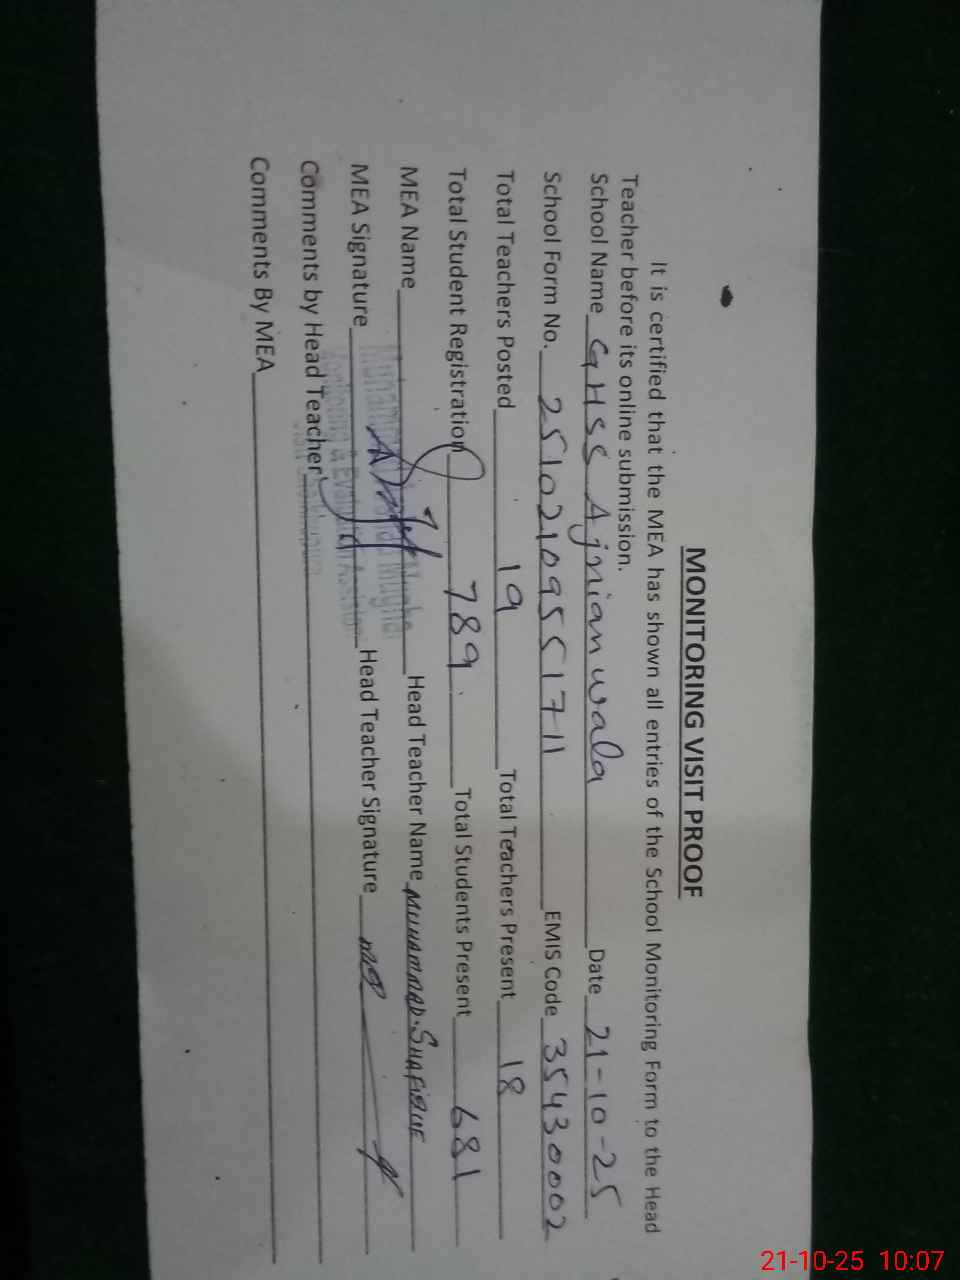 MONITORING VISIT PROOF
It is certified that the MEA has shown all entries of the School Monitoring Form to the Head
Teacher before its online submission.
School Name GHSS Ajnianwala Date 21-10-25
School Form No. 25102109551711 EMIS Code 35430002
Total Teachers Posted 19 Total Teachers Present 18
Total Student Registration 789 Total Students Present 681
MEA Name Head Teacher Name MUHAMMAD SHAFIQUE
MEA Signature Head Teacher Signature
Comments by Head Teacher
Comments By MEA
21-10-25 10:07